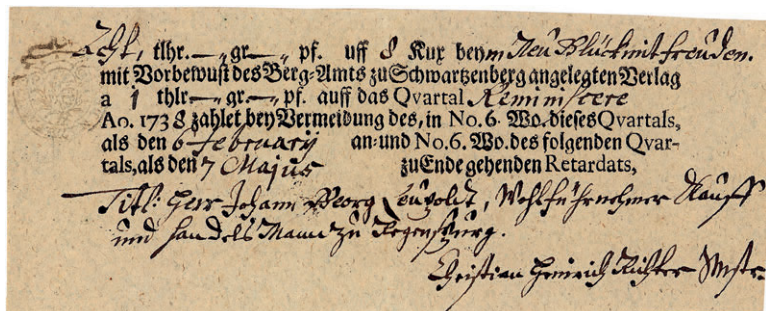 Acht, thlr.—„ gr—„ pf. uff 8 Kux beym Neu Glück mit freuden.
mit Vorbewust des Berg-Amts zu Schwartzenberg angelegten Verlag
a 1 thlr—„ gr.—„ pf. auff das Qvartal Reminiscere
Ao. 1738 zahlet bey Vermeidung des, in No. 6. Wo. dieses Qvartals,
als den 6 february an- und No. 6. Wo. des folgenden Qvar-
tals, als den 7 Majus zu Ende gehenden Retardats,
Titl: Herr Johann Georg Leupoldt, Wohlfürnehmer Kauff
und Handels Mann zu Regenspurg.
Christian Heinrich Richter